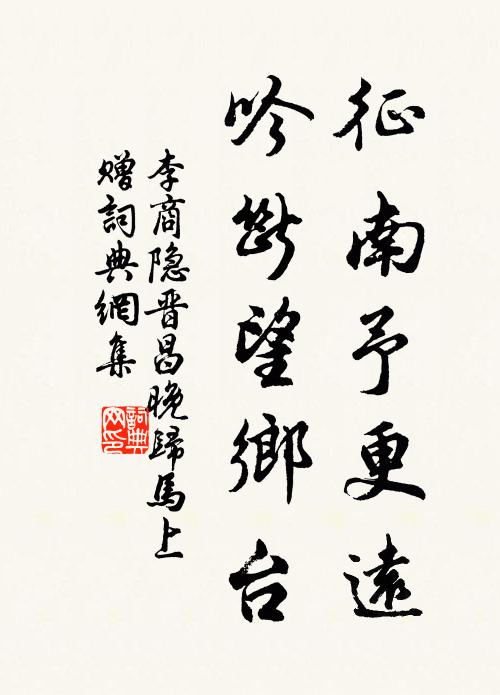 征南予更遠
吟斷望鄉台
李商隐晋昌晚歸馬上
赠詞典網集
詞典
网印